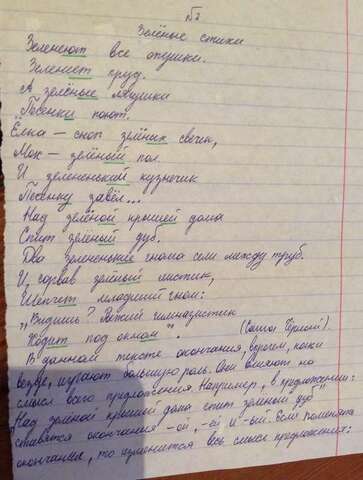 №2
Зелёные стихи
Зеленеют все опушки.
Зеленеет пруд.
А зелёные лягушки
Песенки поют.
Ёлка – сноп зелёных свечек,
Мох – зелёный пол.
И зелененький кузнечик
Песенку завёл...
Над зелёной крышей дома
Спит зелёный дуб.
Два зелененькие гнома сели между труб.
И, сорвав зелёный листик,
Шепчет младший гном:
"Видишь? Рыжий гимназистик
Ходит под окном". (Саша Чёрный).
В данном тексте окончания, впрочем, как и
везде, играют большую роль. Они влияют на
смысл всего предложения. Например, в предложении:
"Над зелёной крышей дома спит зелёный дуб"
ставятся окончания -ой, -ей и -ый. Если поменять
окончание, то изменится весь смысл предложения: